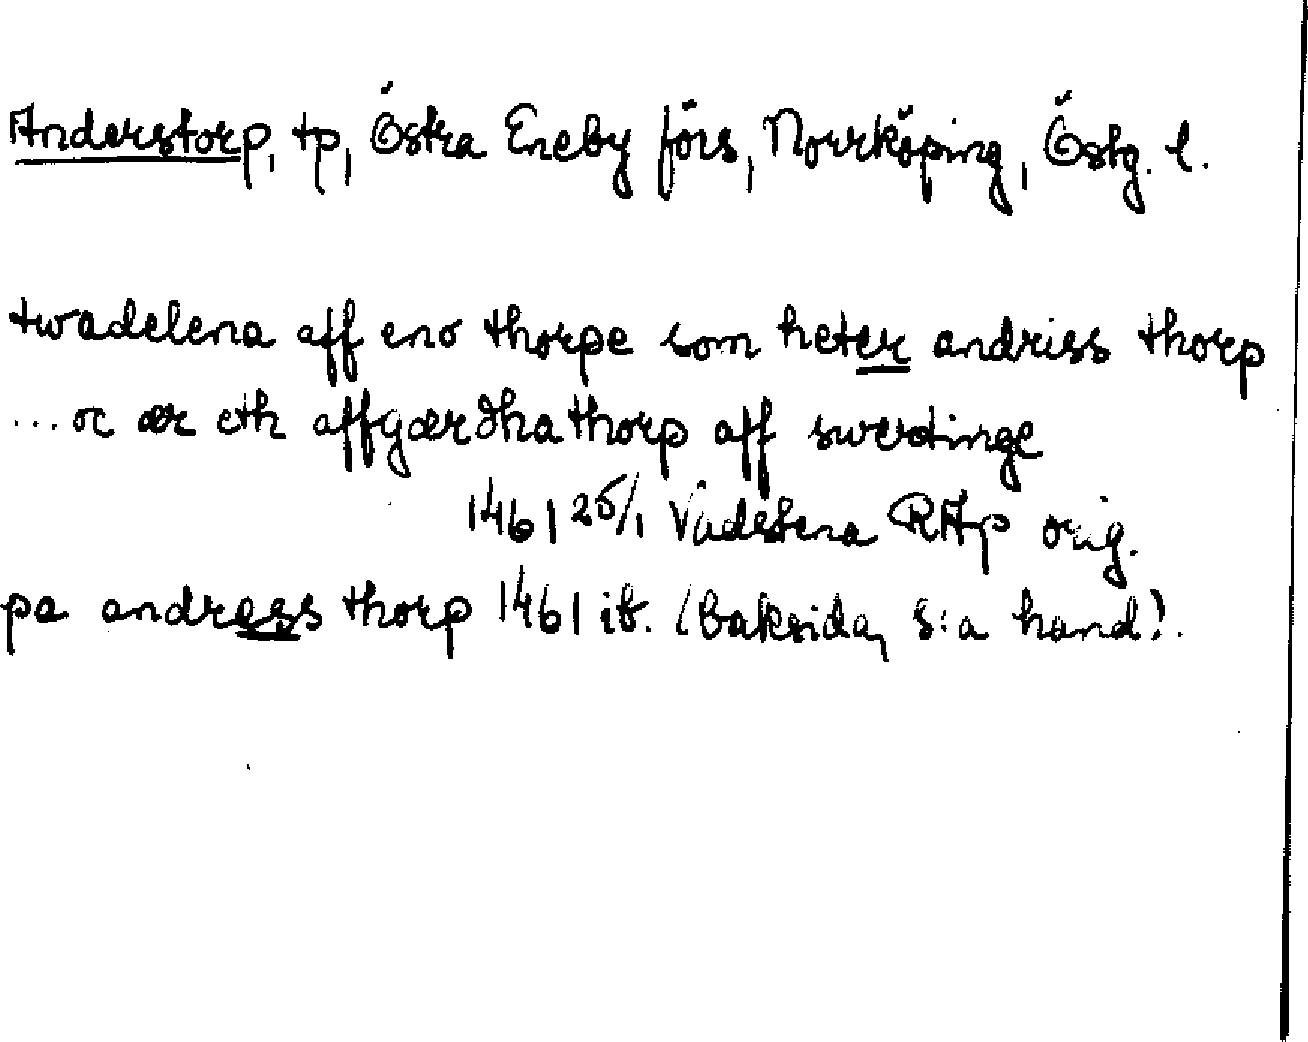 Anderstorp, tp, Östra Eneby förs, Norrköping, Östg. l.
twadelena aff eno thorpe som heter andriss thorp
... oc ær eth affgærdha thorp aff swertinge
1461 25/1 Vadstena RAp orig.
pa andress thorp 1461 ib. (baksida, s:a hand).